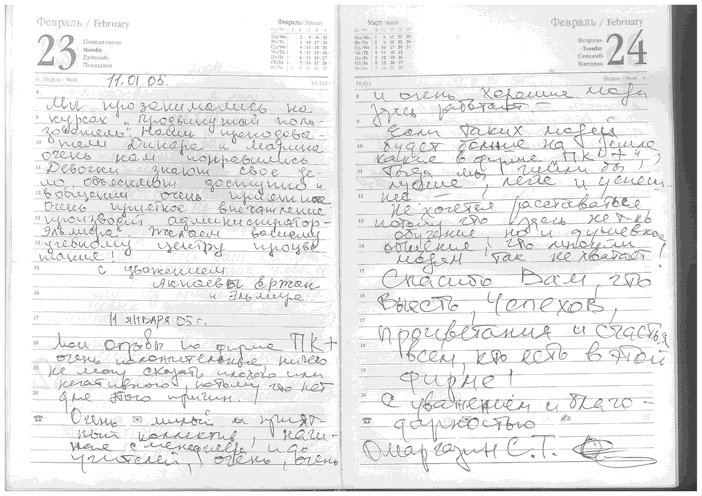 Февраль / February
23
Понедельник
Monday
Дүйсенбі
Февраль / February
11.01.05.
Мы прозанимались на
курсах "Продвинутый поль-
зователь". Наши преподова-
тели Динара и Марина
очень нам понравились
Девочки знают свое де-
ло, объясняют доступно и
в общении очень приятные
Очень приятное впечатление
произвела администратор-
Эльмира. Желаем вашему
учебному центру процве-
тание!
С уважением
Ержан
и Эльмира
11 января 05г.
Мои отзывы по фирме ПК+
очень положительные, ничего
не могу сказать плохого или
негативного, потому что нет
для этого причин.
Очень милый и прият-
ный коллектив, начи-
ная с менеджера и до
учителей, очень, очень
Март / March
Февраль / February
Вторник
Tuesday
Сейсенбі
24
и очень хорошие люди
здесь работают.
Если таких людей
будет больше на Земле
какие в фирме "ПК+",
тогда мы жили бы
лучше, легче и успеш
нее.
Не хочется расставаться
потому что здесь не тко
обучение но и душевное
общение, что многим
людям так не хватает!
Спасибо Вам, что
Вы есть, Успехов,
Процветания и счастья
всем, кто есть в этой
фирме!
С уважением и благо-
дарностью
Омаргазин С.Т.